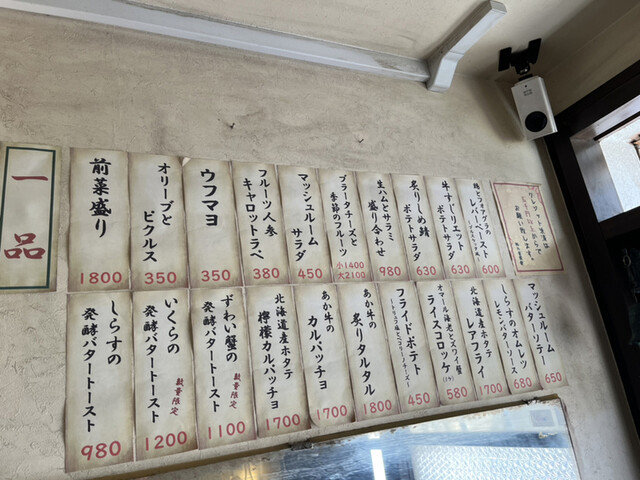 一品
前菜盛り
1800
オリーブと
ピクルス
350
ウフマヨ
350
フルーツ人参
キャロットラペ
380
マッシュルーム
サラダ
450
ブラータチーズと
季節のフルーツ
小1400
大2100
生ハムとサラミ
盛り合わせ
980
炙りしめ鯖
ポテトサラダ
630
牛すじリエット
ポテトサラダ
630
鶏とフォアグラの
レバーペースト
600
お願い致します
しらすの
発酵バタートースト
980
いくらの
発酵バタートースト
数量限定
1200
ずわい蟹の
発酵バタートースト
数量限定
1100
北海道産ホタテ
檸檬カルパッチョ
1700
あか牛の
カルパッチョ
1700
あか牛の
炙りタルタル
1800
フライドポテト
〜トリュフ塩とペコリーノチーズ〜
450
オマール海老とズワイ蟹
ライスコロッケ(1ケ)
580
北海道産ホタテ
レアフライ
1700
しらすのオムレツ
レモンバターソース
680
マッシュルーム
バターソテー
650